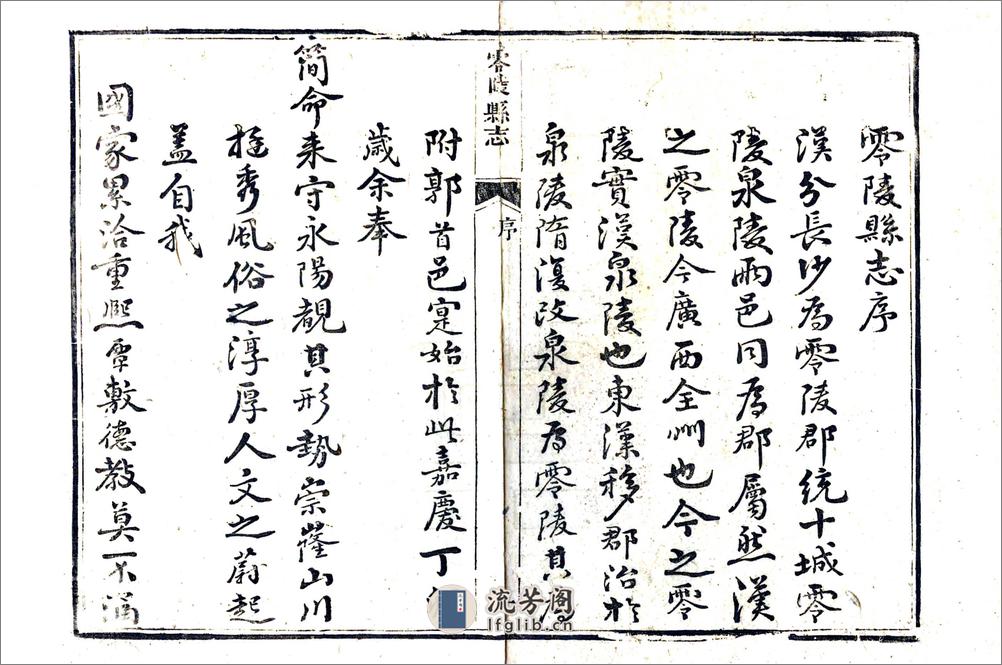 零陵縣志序
漢分長沙為零陵郡統十城零
陵泉陵兩邑同為郡屬然漢
之零陵今廣西全州也今之零
陵實漢泉陵也東漢移郡治於
泉陵隋復改泉陵為零陵其為
零陵縣志
序
附郭首邑寔始於此嘉慶丁
歲余奉
簡命來守永陽覩其形勢崇窿山川
挺秀風俗之淳厚人文之蔚起
蓋自我
國家累洽重熙覃敷德教莫不涵
流芳阁
lfglib.cn